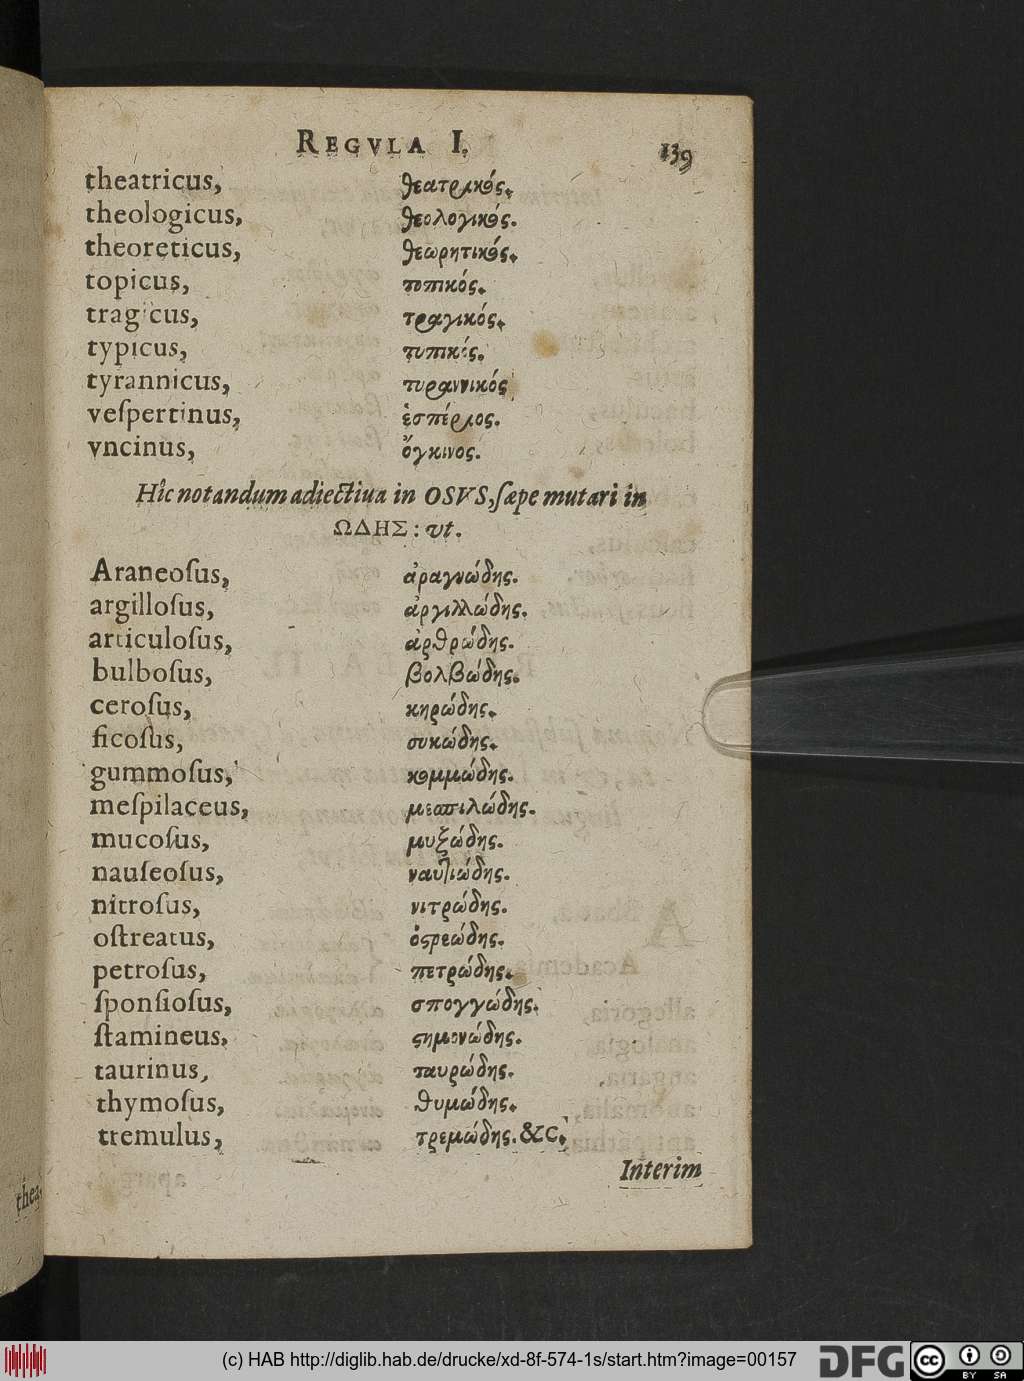 REGVLA I. 139
theatricus, θεατρικός.
theologicus, θεολογικός.
theoreticus, θεωρητικός.
topicus, τοπικός.
tragicus, τραγικός.
typicus, τυπικός.
tyrannicus, τυραννικός
veſpertinus, ἑσπέριος.
vncinus, ὄγκινος.
Hîc notandum adiectiua in OSVS, ſæpe mutari in
ΩΔΗΣ: vt.
Araneoſus, ἀραχνώδης.
argilloſus, ἀργιλλώδης.
articuloſus, ἀρθρώδης.
bulboſus, βολβώδης.
ceroſus, κηρώδης.
ficoſus, συκώδης.
gummoſus, κομμώδης.
meſpilaceus, μεσπιλώδης.
mucoſus, μυξώδης.
nauſeoſus, ναυτιώδης.
nitroſus, νιτρώδης.
oſtreatus, ὀϛρεώδης.
petroſus, πετρώδης.
ſponſioſus, σπογγώδης.
ſtamineus, ϛημονώδης.
taurinus, ταυρώδης.
thymoſus, θυμώδης.
tremulus, τρεμώδης. &c.
Interim
thea-
(c) HAB http://diglib.hab.de/drucke/xd-8f-574-1s/start.htm?image=00157
DFG
cc BY SA